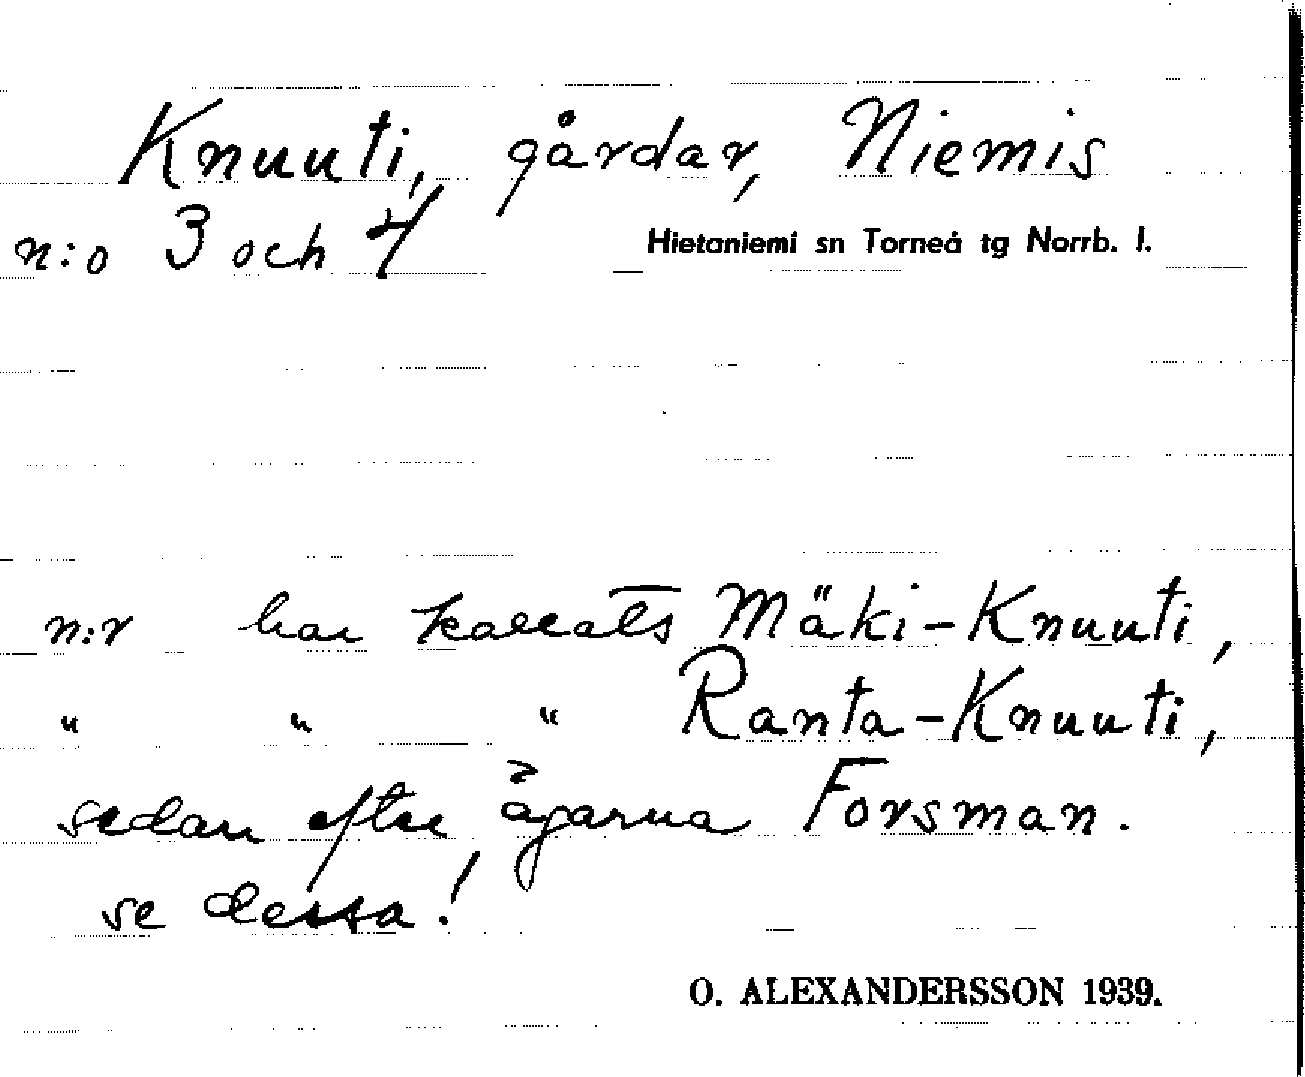 Knuuti, gårdar, Niemis
n:o 3 och 4
Hietaniemi sn Torneå tg Norrb. l.
n:r har kallats Mäki-Knuuti,
" " " Ranta-Knuuti,
sedan efter ägarna Forsman.
se dessa!
O. ALEXANDERSSON 1939.